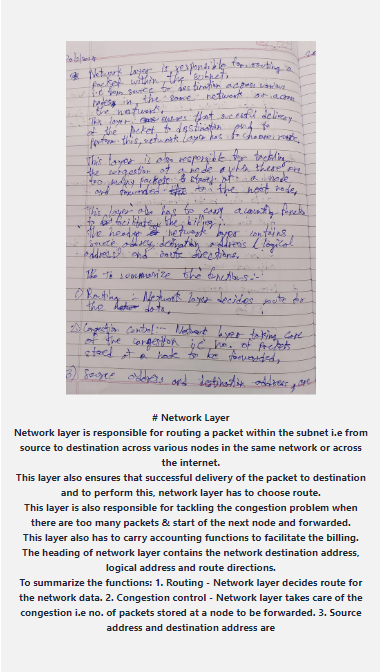 Network layer is responsible for routing a
packet within the subnet,
i.e from source to destination across various
nodes in the same network or across
the network.
This layer ensures that successful delivery
of the packet to destination and to
perform this, network layer has to choose route.
This layer is also responsible for tackling
the congestion at a node when there are
too many packets stored at a node
and forwarded to the next node,
This layer also has to carry accounting
to facilitate the billing.
The header network layer contains,
source address, destination address (logical
address) and route directions.
To summarize the functions:-
1) Routing :- Network layer decides route for
the data.
2) Congestion control:- Network layer taking care
of the congestion i.e no. of packets
stored at a node to be forwarded,
3) Source address and destination address, are
# Network Layer
Network layer is responsible for routing a packet within the subnet i.e from
source to destination across various nodes in the same network or across
the internet.
This layer also ensures that successful delivery of the packet to destination
and to perform this, network layer has to choose route.
This layer is also responsible for tackling the congestion problem when
there are too many packets & start of the next node and forwarded.
This layer also has to carry accounting functions to facilitate the billing.
The heading of network layer contains the network destination address,
logical address and route directions.
To summarize the functions: 1. Routing - Network layer decides route for
the network data. 2. Congestion control - Network layer takes care of the
congestion i.e no. of packets stored at a node to be forwarded. 3. Source
address and destination address are